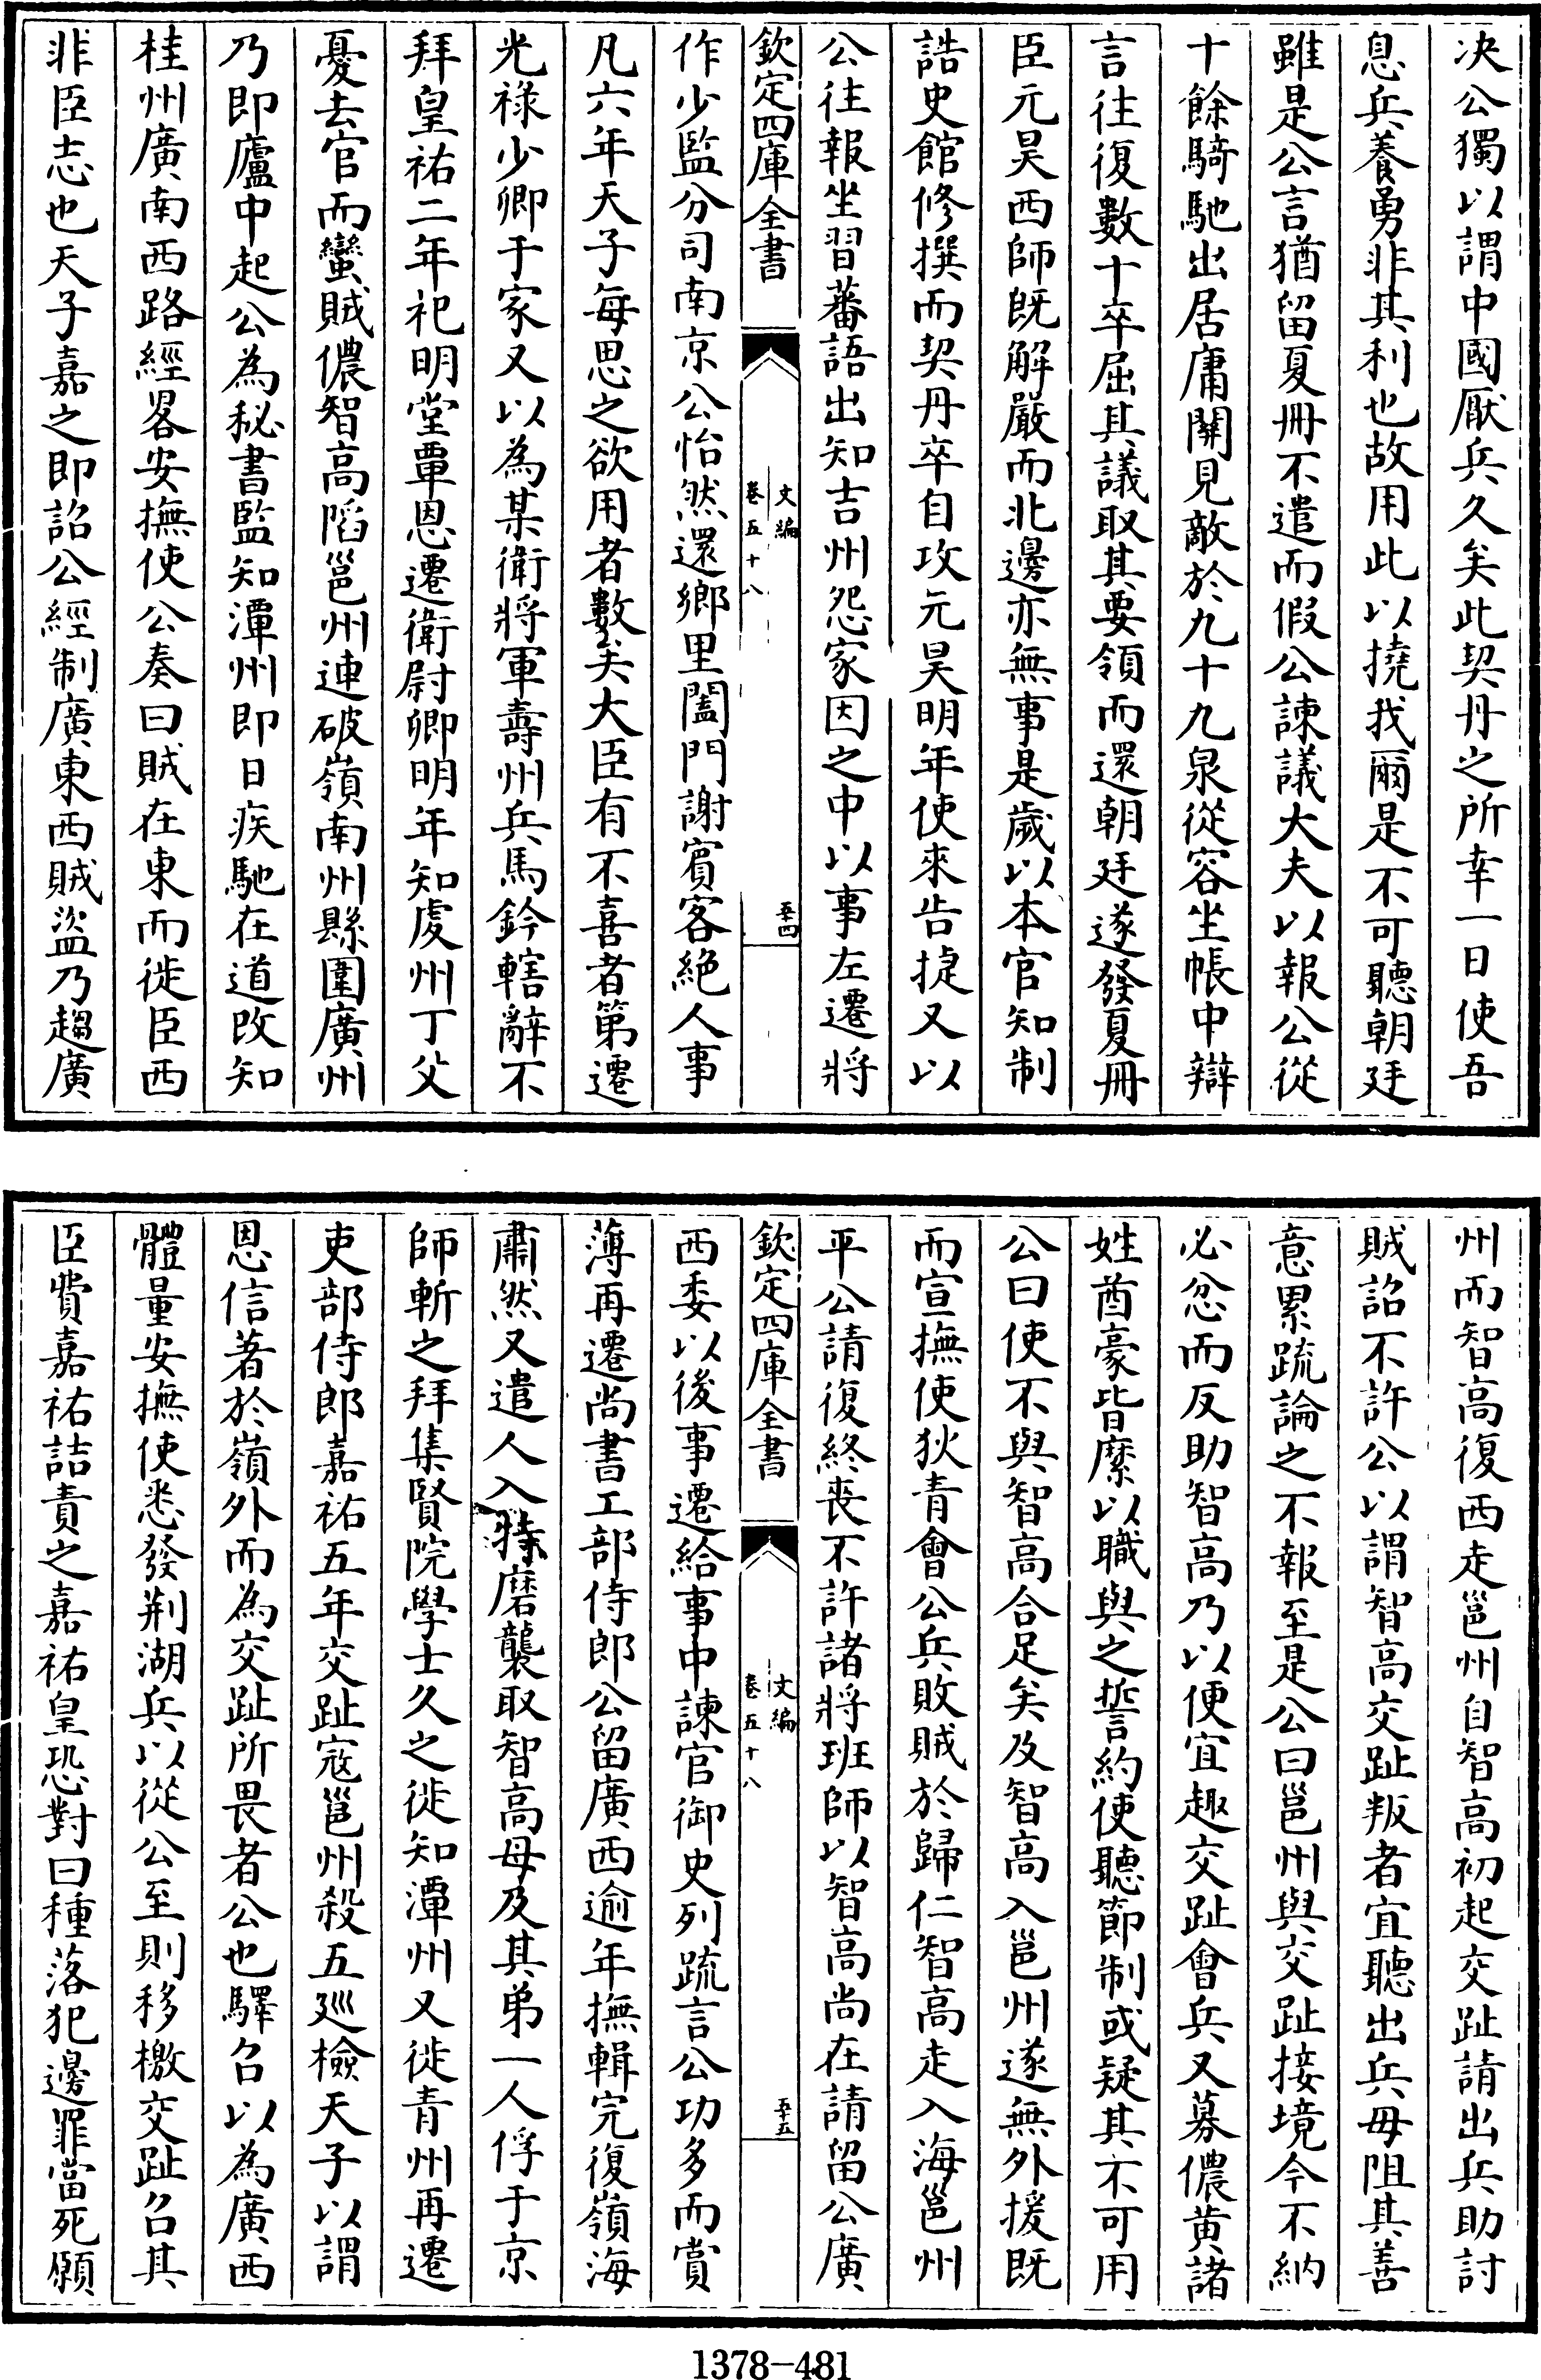 决公獨以謂中國厭兵久矣此契丹之所幸一日使吾
息兵養勇非其利也故用此以撓我爾是不可聽朝廷
雖是公言猶留夏冊不遣而假公諫議大夫以報公從
十餘騎馳出居庸關見敵於九十九泉從容坐帳中辯
言往復數十卒屈其議取其要領而還朝廷遂發夏冊
臣元昊西師既解嚴而北邊亦無事是歲以本官知制
誥史館修撰而契丹卒自攻元昊明年使來告捷又以
公往報坐習蕃語出知吉州怨家因之中以事左遷將
欽定四庫全書
文編
卷五十八
五十四
作少監分司南京公怡然還鄉里闔門謝賓客絶人事
凡六年天子每思之欲用者數矣大臣有不喜者第遷
光祿少卿于家又以為某衛將軍壽州兵馬鈐轄辭不
拜皇祐二年祀明堂覃恩遷衛尉卿明年知虔州丁父
憂去官而蠻賊儂智高陷邕州連破嶺南州縣圍廣州
乃即廬中起公為秘書監知潭州即日疾馳在道改知
桂州廣南西路經畧安撫使公奏曰賊在東而徙臣西
非臣志也天子嘉之即詔公經制廣東西賊盜乃趨廣
州而智高復西走邕州自智高初起交趾請出兵助討
賊詔不許公以謂智高交趾叛者宜聽出兵毋阻其善
意累疏論之不報至是公曰邕州與交趾接境今不納
必忿而反助智高乃以便宜趣交趾會兵又募儂黄諸
姓酋豪皆縻以職與之誓約使聽節制或疑其不可用
公曰使不與智高合足矣及智高入邕州遂無外援既
而宣撫使狄青會公兵敗賊於歸仁智高走入海邕州
平公請復終喪不許諸將班師以智高尚在請留公廣
欽定四庫全書
文編
卷五十八
五十五
西委以後事遷給事中諫官御史列疏言公功多而賞
薄再遷尚書工部侍郎公留廣西逾年撫輯完復嶺海
肅然又遣人入特磨襲取智高母及其弟一人俘于京
師斬之拜集賢院學士久之徙知潭州又徙青州再遷
吏部侍郎嘉祐五年交趾寇邕州殺五巡檢天子以謂
恩信著於嶺外而為交趾所畏者公也驛召以為廣西
體量安撫使悉發荆湖兵以從公至則移檄交趾召其
臣費嘉祐詰責之嘉祐皇恐對曰種落犯邊罪當死願
1378-481